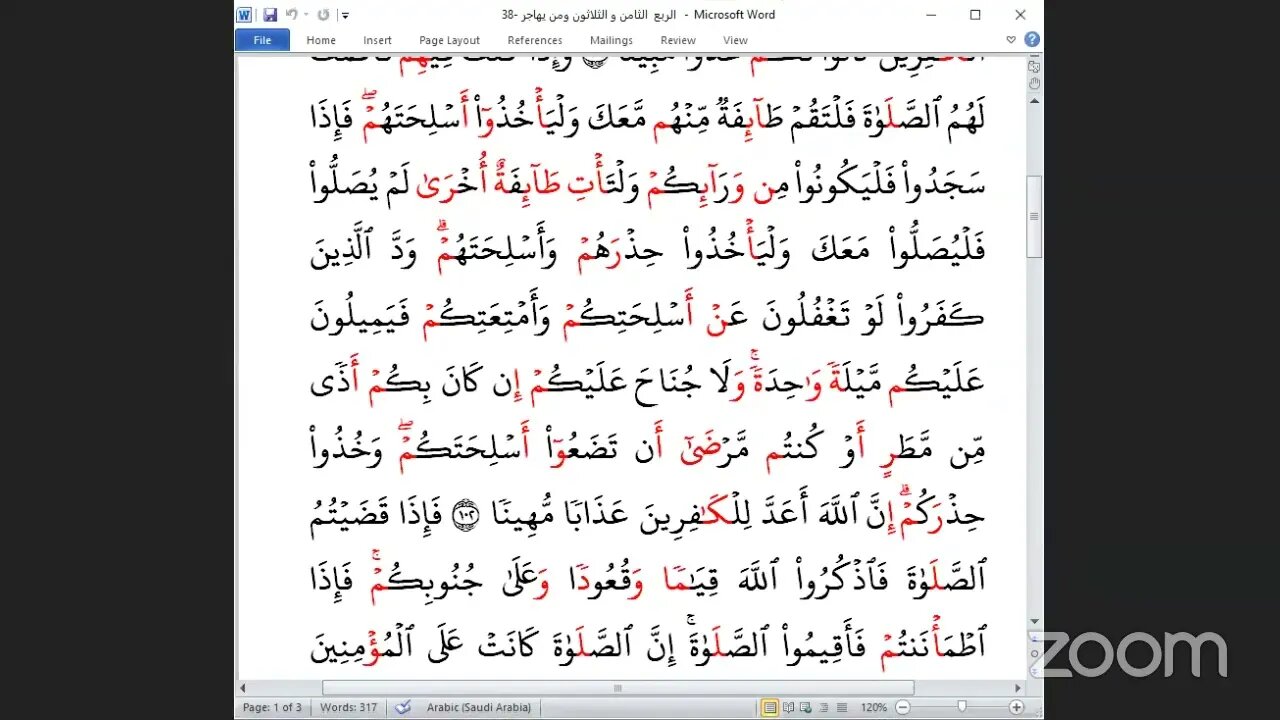 الربع الثامن و الثلاثون ومن يهاجر -38 - Microsoft Word
File Home Insert Page Layout References Mailings Review View
لَهُمُ ٱلصَّلَوٰةَ فَلْتَقُمْ طَآئِفَةٌ مِّنْهُم مَّعَكَ وَلْيَأْخُذُوٓا۟ أَسْلِحَتَهُمْۖ فَإِذَا
سَجَدُوا۟ فَلْيَكُونُوا۟ مِن وَرَآئِكُمْ وَلْتَأْتِ طَآئِفَةٌ أُخْرَىٰ لَمْ يُصَلُّوا۟
فَلْيُصَلُّوا۟ مَعَكَ وَلْيَأْخُذُوا۟ حِذْرَهُمْ وَأَسْلِحَتَهُمْۗ وَدَّ ٱلَّذِينَ
كَفَرُوا۟ لَوْ تَغْفُلُونَ عَنْ أَسْلِحَتِكُمْ وَأَمْتِعَتِكُمْ فَيَمِيلُونَ
عَلَيْكُم مَّيْلَةً وَٰحِدَةًۚ وَلَا جُنَاحَ عَلَيْكُمْ إِن كَانَ بِكُمْ أَذًى
مِّن مَّطَرٍ أَوْ كُنتُم مَّرْضَىٰٓ أَن تَضَعُوٓا۟ أَسْلِحَتَكُمْۖ وَخُذُوا۟
حِذْرَكُمْۗ إِنَّ ٱللَّهَ أَعَدَّ لِلْكَٰفِرِينَ عَذَابًا مُّهِينًا ١٠٢ فَإِذَا قَضَيْتُمُ
ٱلصَّلَوٰةَ فَٱذْكُرُوا۟ ٱللَّهَ قِيَٰمًا وَقُعُودًا وَعَلَىٰ جُنُوبِكُمْۚ فَإِذَا
ٱطْمَأْنَنتُمْ فَأَقِيمُوا۟ ٱلصَّلَوٰةَۚ إِنَّ ٱلصَّلَوٰةَ كَانَتْ عَلَى ٱلْمُؤْمِنِينَ
zoom
Page: 1 of 3 Words: 317 Arabic (Saudi Arabia) 120%